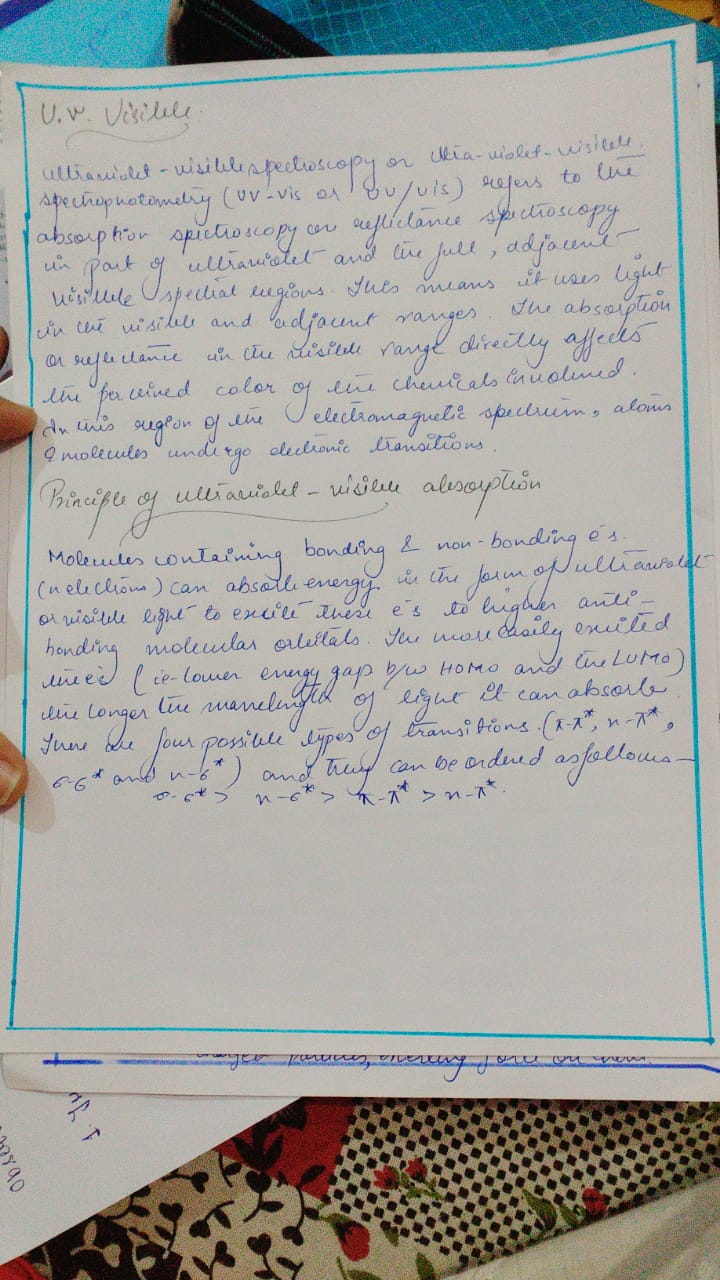 U.V. Visible
Ultraviolet-visible spectroscopy or ultra-violet-visible
spectrophotometry (UV-Vis or UV/Vis) refers to the
absorption spectroscopy or reflectance spectroscopy
in part of ultraviolet and the full, adjacent
visible spectral regions. This means it uses light
in the visible and adjacent ranges. The absorption
or reflectance in the visible range directly affects
the perceived color of the chemicals involved.
In this region of the electromagnetic spectrum, atoms
& molecules undergo electronic transitions.
Principle of ultraviolet-visible absorption
Molecules containing bonding & non-bonding e's.
(n electrons) can absorb energy in the form of ultraviolet
or visible light to excite these e's to higher anti-
bonding molecular orbitals. The more easily excited
the e's (ie-lower energy gap b/w HOMO and the LUMO)
the longer the wavelength of light it can absorb.
There are four possible types of transitions. (π-π*, n-π*,
σ-σ* and n-σ*) and they can be ordered as follows-
σ-σ* > n-σ* > π-π* > n-π*.
force on them.